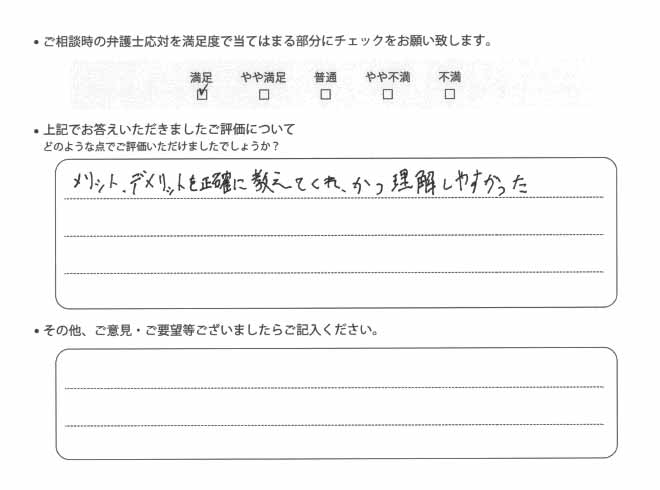 ・ご相談時の弁護士応対を満足度で当てはまる部分にチェックをお願い致します。
満足 やや満足 普通 やや不満 不満
☑ ☐ ☐ ☐ ☐
・上記でお答えいただきましたご評価について
どのような点でご評価いただけましたでしょうか？
メリット、デメリットを正確に教えてくれ、かつ理解しやすかった
・その他、ご意見・ご要望等ございましたらご記入ください。